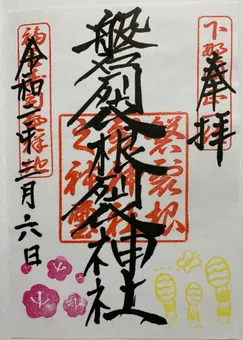 奉拝
磐裂根裂神社
令和二年三月六日
磐裂根
裂神社
之神璽